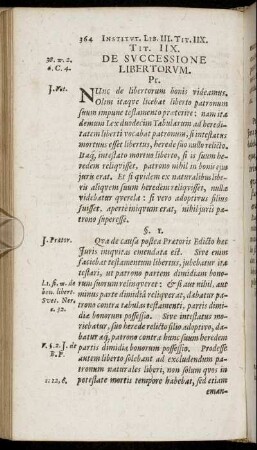 364 INSTITUT. LIB. III. TIT. IIX.
TIT. IIX.
DE SVCCESSIONE
LIBERTORVM.
Pr.
Nunc de libertorum bonis videamus.
Olim itaque licebat liberto patronum
suum impune testamento præterire: nam ita
demum Lex duodecim Tabularum ad heredi-
tatem liberti vocabat patronum, si intestatus
mortuus esset libertus, herede suo nullo relicto.
Itaq; intestato mortuo liberto, si is suum he-
redem reliqvisset, patrono nihil in bonis ejus
juris erat. Et si qvidem ex naturalibus libe-
ris aliqvem suum heredem reliqvisset, nulla
videbatur qverela: si vero adoptivus filius
fuisset, aperte iniqvum erat, nihil juris pa-
trono superesse.
§. 1.
Qva de causa postea Prætoris Edicto hæc
Juris iniqvitas emendata est. Sive enim
faciebat testamentum libertus, jubebatur ita
testari, ut patrono partem dimidiam bonorum
suorum relinqveret: & si aut nihil, aut
minus parte dimidia reliqverat, dabatur pa-
trono contra tabulas testamenti, partis dimi-
diæ bonorum possessio. Sive intestatus mo-
riebatur, suo herede relicto filio adoptivo, da-
batur æq; patrono contra hunc suum heredem
partis dimidiæ bonorum possessio. Prodesse
autem liberto solebant ad excludendum pa-
tronum naturales liberi, non solum qvos in
potestate mortis tempore habebat, sed etiam
eman-
J. Vet.
J. Prætor.